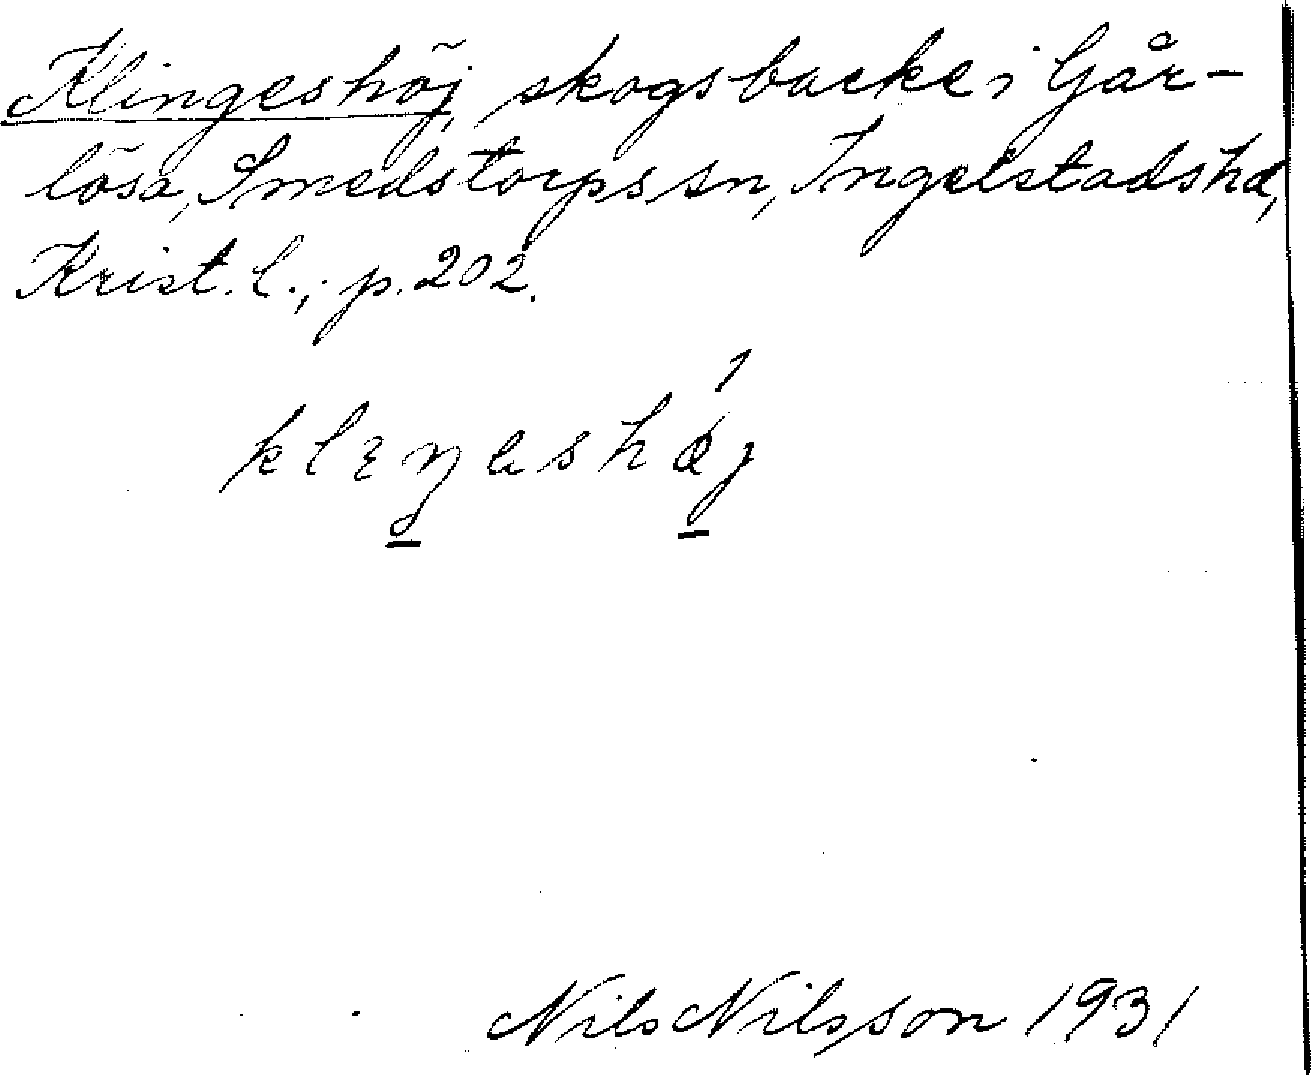 Klingeshöj, skogsbacke i Går-
lösa, Smedstorps sn, Ingelstads hd,
Krist. l., p. 202.
klɛŋəshǿj
Nils Nilsson 1931